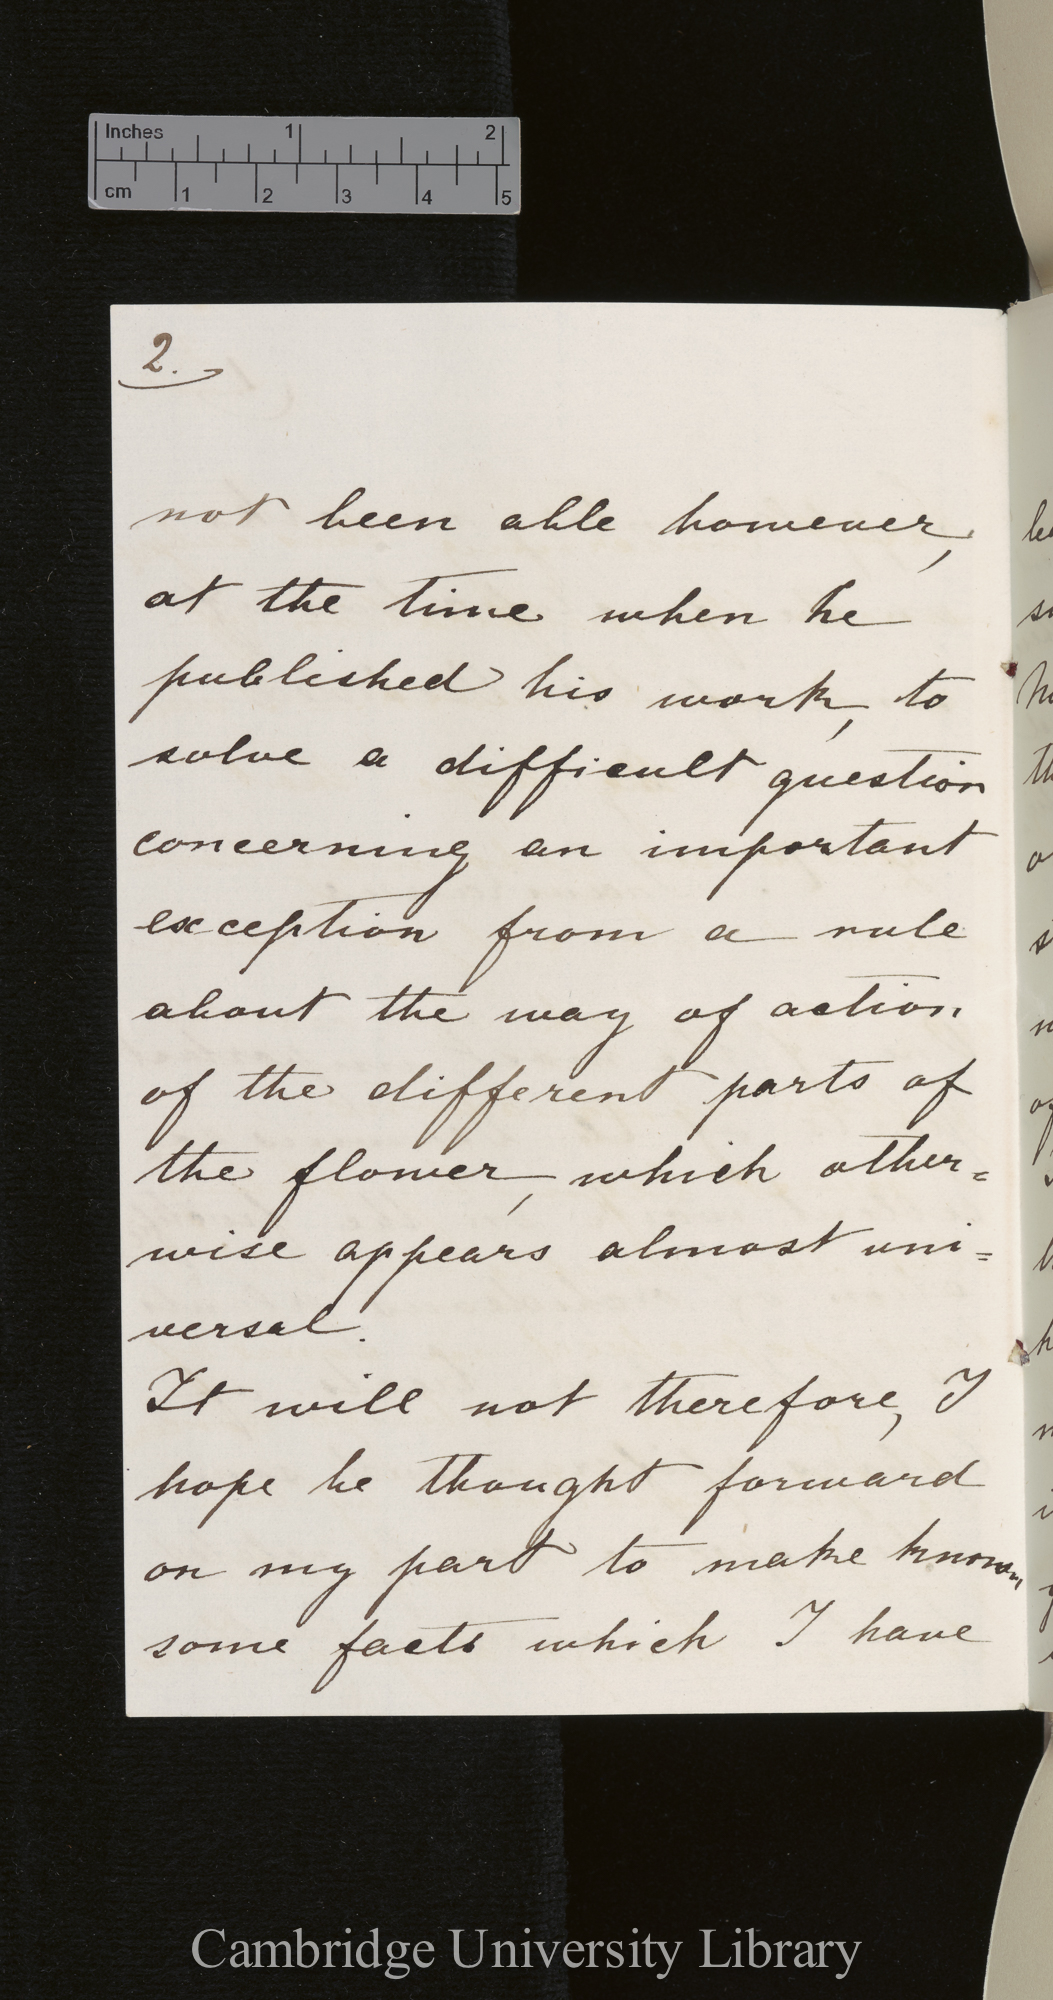 Inches 1 2
cm 1 2 3 4 5
2.
not been able however,
at the time when he
published his work, to
solve a difficult question
concerning an important
exception from a rule
about the way of action
of the different parts of
the flower, which other=
wise appears almost uni=
versal.
It will not therefore, I
hope be thought forward
on my part to make known
some facts which I have
Cambridge University Library